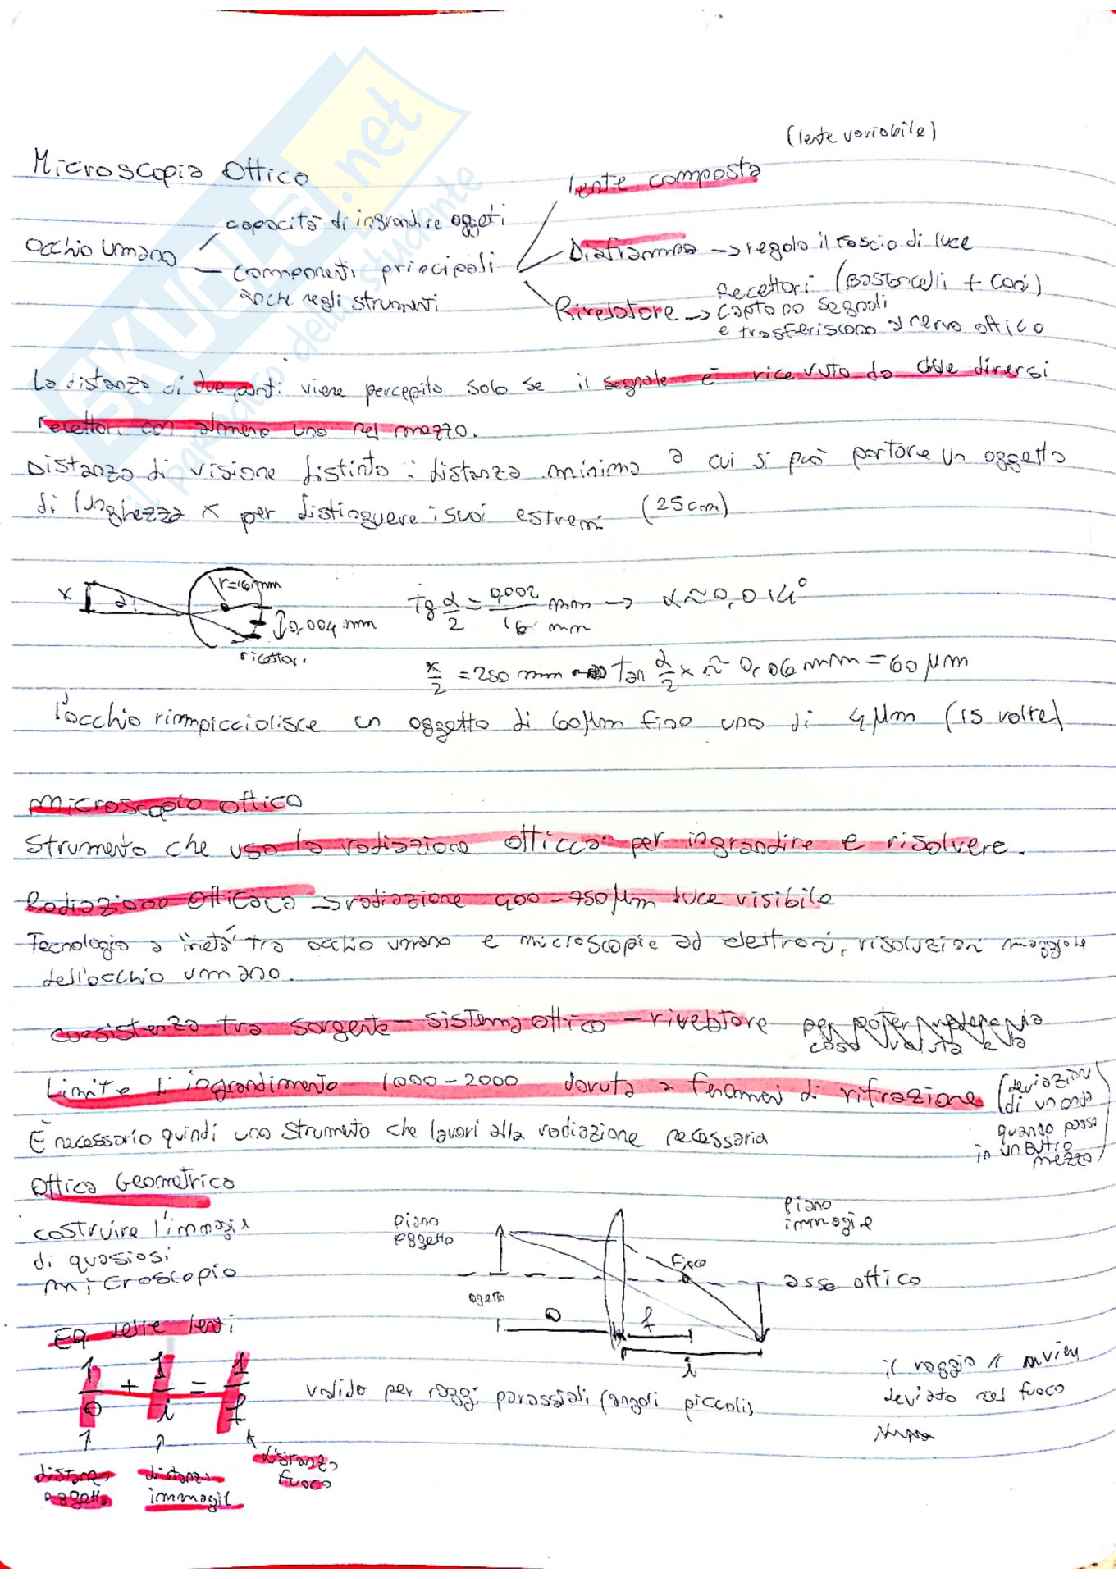 (lente variabile)
Microscopia Ottica
lente composta
capacità di ingrandire oggetti
occhio umano
componenti principali
anche negli strumenti
Diaframma → regola il fascio di luce
Recettori (Bastoncelli + Coni)
Rivelatore → captano segnali
e trasferiscono al nervo ottico
La distanza di due punti viene percepita solo se il segnale è ricevuto da due diversi
recettori con almeno uno nel mezzo.
Distanza di visione distinta : distanza minima a cui si può portare un oggetto
di lunghezza x per distinguere i suoi estremi (25cm)
x α r=16mm
0.004 mm
ricettori
Tg α/2 = 0,002/16 mm/mm → α≈0,014°
x/2 = 250 mm tan α/2 x ≈ 0,06 mm = 60 μm
l'occhio rimpicciolisce un oggetto di 60μm fino uno di 4μm (15 volte)
Microscopio ottico
Strumento che usa la radiazione ottica per ingrandire e risolvere.
Radiazione ottica → radiazione 400-750μm luce visibile
Tecnologia a metà tra occhio umano e microscopie ad elettroni, risoluzioni maggiore
dell'occhio umano.
coesistenza tra sorgente - sistema ottico - rivelatore per poter
cosa
Limite d'ingrandimento 1000-2000 dovuta a fenomeni di rifrazione (deviazioni
di un onda
quando passa
in un altro
mezzo)
È necessario quindi uno strumento che lavori alla radiazione necessaria
Ottica Geometrica
costruire l'immagine
di qualsiasi
microscopio
piano
oggetto
piano
immagine
Fuoco
asse ottico
oggetto
o
f
i
Eq delle lenti
1/o + 1/i = 1/f
valido per raggi parassiali (angoli piccoli)
il raggio 1 viene
deviato nel fuoco
distanza
oggetto
distanza
immagine
distanza
fuoco
SKUOLA.net
il paradiso dello studente